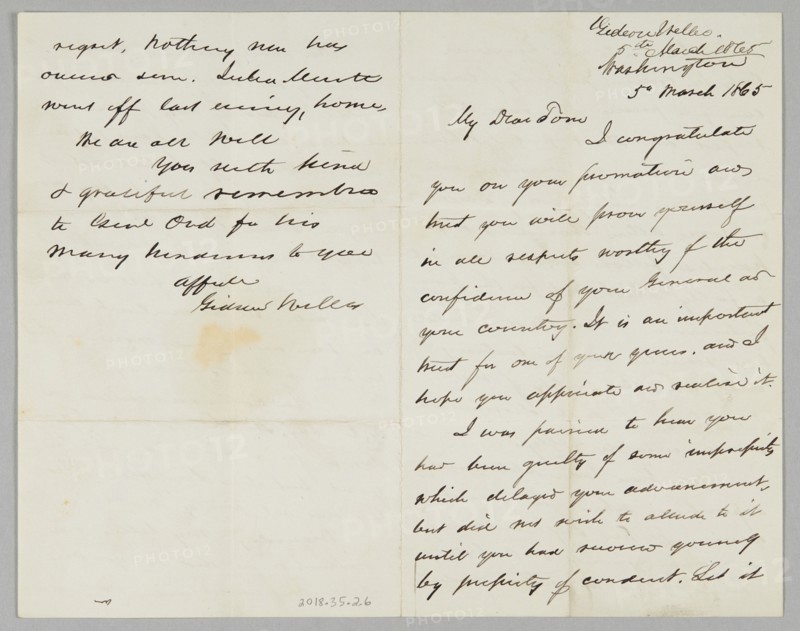 Gideon Welles.
5th March 1865
Washington
5th March 1865
My Dear Tom
I congratulate
you on your promotion and
trust you will prove yourself
in all respects worthy of the
confidence of your General and
your country. It is an important
trust for one of your years, and I
hope you appreciate and realize it.
I was pained to hear you
had been guilty of some impropriety
which delayed your advancement,
but did not wish to allude to it
until you had redeemed yourself
by propriety of conduct. Let it
regret. Nothing new has
occurred here.
went off last evening, home,
We are all well
Yours with kind
& grateful remembrance
to Genl Ord for his
many kindnesses to you
affcte
Gideon Welles
2018.35.26
PHOTO12